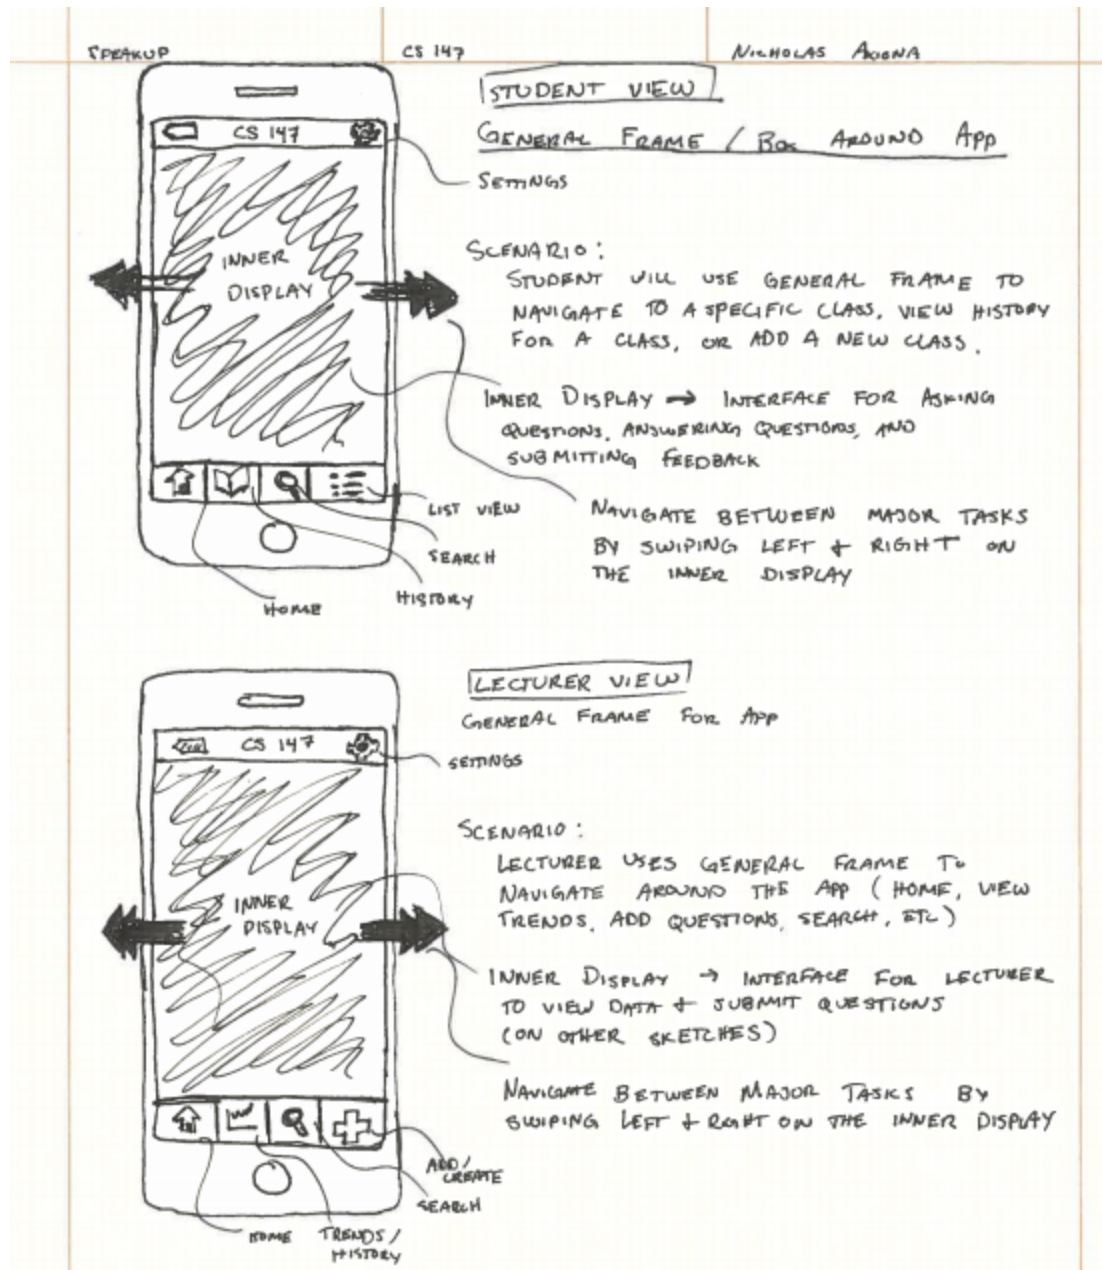 SPEAKUP
CS 147
NICHOLAS
STUDENT VIEW
GENERAL FRAME / BOX AROUND APP
CS 147
SETTINGS
INNER
DISPLAY
SCENARIO:
STUDENT WILL USE GENERAL FRAME TO
NAVIGATE TO A SPECIFIC CLASS, VIEW HISTORY
FOR A CLASS, OR ADD A NEW CLASS.
INNER DISPLAY → INTERFACE FOR ASKING
QUESTIONS, ANSWERING QUESTIONS, AND
SUBMITTING FEEDBACK
NAVIGATE BETWEEN MAJOR TASKS
BY SWIPING LEFT + RIGHT ON
THE INNER DISPLAY
LIST VIEW
SEARCH
HISTORY
HOME
LECTURER VIEW
GENERAL FRAME FOR APP
CS 147
SETTINGS
INNER
DISPLAY
SCENARIO:
LECTURER USES GENERAL FRAME TO
NAVIGATE AROUND THE APP (HOME, VIEW
TRENDS, ADD QUESTIONS, SEARCH, ETC)
INNER DISPLAY → INTERFACE FOR LECTURER
TO VIEW DATA + SUBMIT QUESTIONS
(ON OTHER SKETCHES)
NAVIGATE BETWEEN MAJOR TASKS BY
SWIPING LEFT + RIGHT ON THE INNER DISPLAY
ADD/
CREATE
SEARCH
HOME
TRENDS/
HISTORY